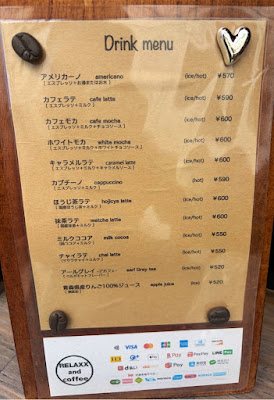 Drink menu
アメリカーノ americano (ice/hot) ¥570
[ エスプレッソ+お湯またはお水 ]
カフェラテ cafe latte (ice/hot) ¥590
[ エスプレッソ+ミルク ]
カフェモカ cafe mocha (ice/hot) ¥600
[ エスプレッソ+ミルク+チョコソース ]
ホワイトモカ white mocha (ice/hot) ¥600
キャラメルラテ caramel latte (ice/hot) ¥600
[ エスプレッソ+ミルク+キャラメルソース ]
カプチーノ cappuccino (hot) ¥590
[ エスプレッソ+ミルク ]
ほうじ茶ラテ hojicya latte (ice/hot) ¥600
抹茶ラテ matcha latte (ice/hot) ¥600
ミルクココア milk cocoa (ice/hot) ¥550
チャイラテ chai latte (ice/hot) ¥550
アールグレイ earl Gray tea (ice/hot) ¥520
青森県産りんご100%ジュース apple juice (ice) ¥520
RELAXX
and
coffee
VISA
PayPay
LINE Pay